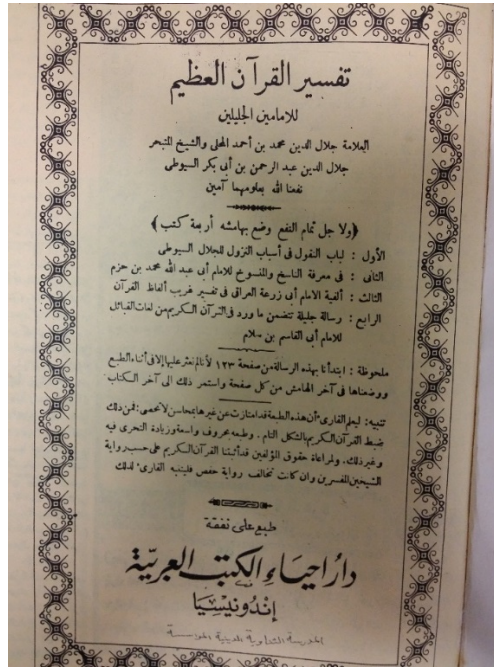 تفسير القرآن العظيم
للامامين الجليلين
العلامة جلال الدين محمد بن أحمد المحلى والشيخ المتبحر
جلال الدين عبد الرحمن بن أبى بكر السيوطى
نفعنا الله بعلومهما آمين
﴿ولاجل تمام النفع وضع بهامشه أربعة كتب﴾
الأول : لباب النقول فى أسباب النزول للجلال السيوطى
الثانى : فى معرفة الناسخ والمنسوخ للامام أبى عبد الله محمد بن حزم
الثالث : ألفية الامام أبى زرعة العراقى فى تفسير غريب ألفاظ القرآن
الرابع : رسالة جليلة تتضمن ما ورد فى القرآن الكريم من لغات القبائل
للامام أبى القاسم بن سلام
ملحوظة : ابتدأنا بهذه الرسالة من صفحة ١٢٣ لأنالم نعثر عليها إلا فى أثناء الطبع
ووضعناها فى آخر الهامش من كل صفحة واستمر ذلك الى آخر الكتاب
تنبيه : ليعلم القارئ أن هذه الطبعة قد امتازت عن غيرها بمحاسن لاتحصى : فمن ذلك
ضبط القرآن الكريم بالشكل التام . وطبعه بحروف واسعة وزيادة التحرى فيه
وغير ذلك . ولمراعاة حقوق المؤلفين قد أثبتنا القرآن الكريم على حسب رواية
الشيخين المفسرين وان كانت تخالف رواية حفص فليتنبه القارئ لذلك
طبع على نفقة
دار احياء الكتب العربية
إندونيسيا
المدرسة